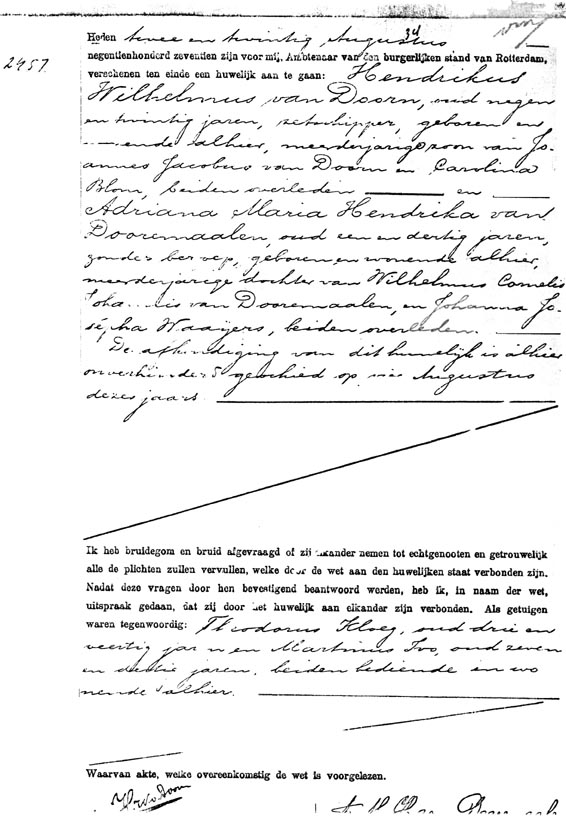 Heden twee en twintig Augustus
negentienhonderd zeventien zijn voor mij, Ambtenaar van den burgerlijken stand van Rotterdam,
2457.
verschenen ten einde een huwelijk aan te gaan: Hendrikus
Wilhelmus van Doorn, oud negen
en twintig jaren, zetschipper, geboren en
ende alhier, meerderjarige zoon van Jo-
annes Jacobus van Doorn en Carolina
Blom, beiden overleden en
Adriana Maria Hendrika van
Dooremaalen, oud een en dertig jaren,
zonder beroep, geboren en wonende alhier,
meerderjarige dochter van Wilhelmus Cornelis
van Dooremaalen, en Johanna Jo-
sépha Waaijers, beiden overleden.
De afkondiging van dit huwelijk is alhier
onverhinderd geschied op Augustus
dezes jaars
Ik heb bruidegom en bruid afgevraagd of zij elkander nemen tot echtgenooten en getrouwelijk
alle de plichten zullen vervullen, welke door de wet aan den huwelijken staat verbonden zijn.
Nadat deze vragen door hen bevestigend beantwoord werden, heb ik, in naam der wet,
uitspraak gedaan, dat zij door het huwelijk aan elkander zijn verbonden. Als getuigen
waren tegenwoordig: Theodorus Kloeg, oud drie en
veertig jaren en Martinus Ivo, oud zeven
en dertig jaren, beiden bediende en wo
nende alhier.
Waarvan akte, welke overeenkomstig de wet is voorgelezen.
HW v Doorn